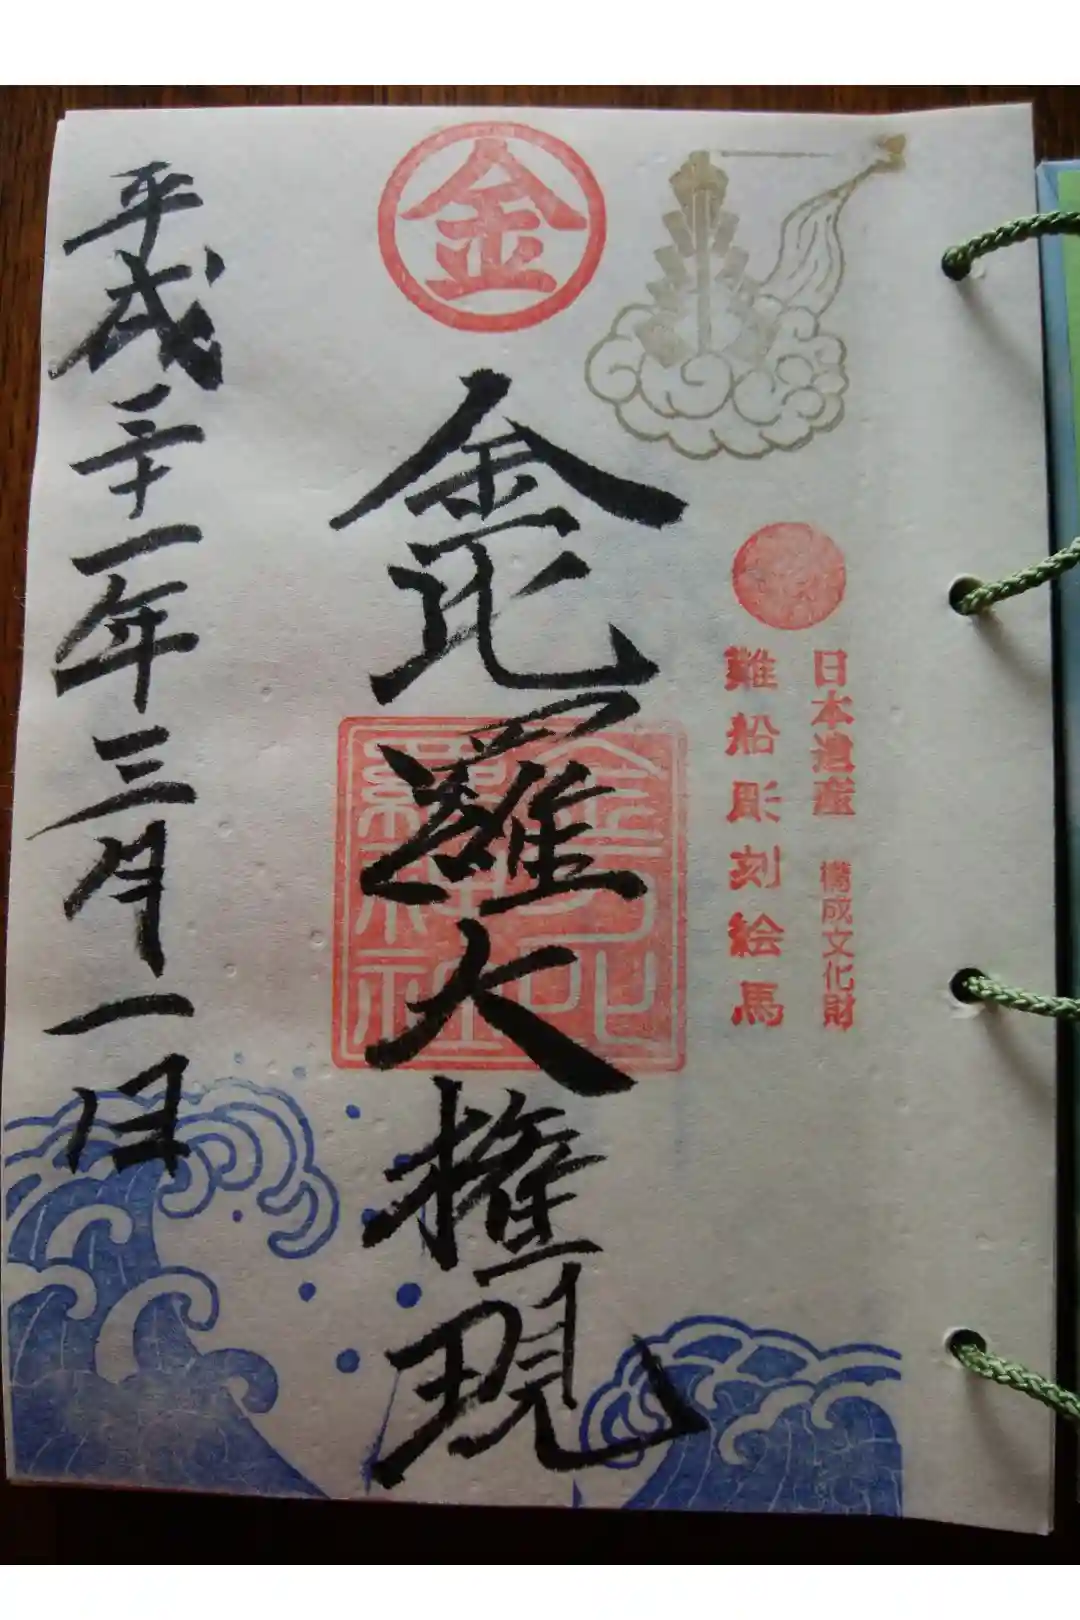 日本遺産 構成文化財
難船彫刻絵馬
金
金毘羅大権現
平成三十一年三月一日